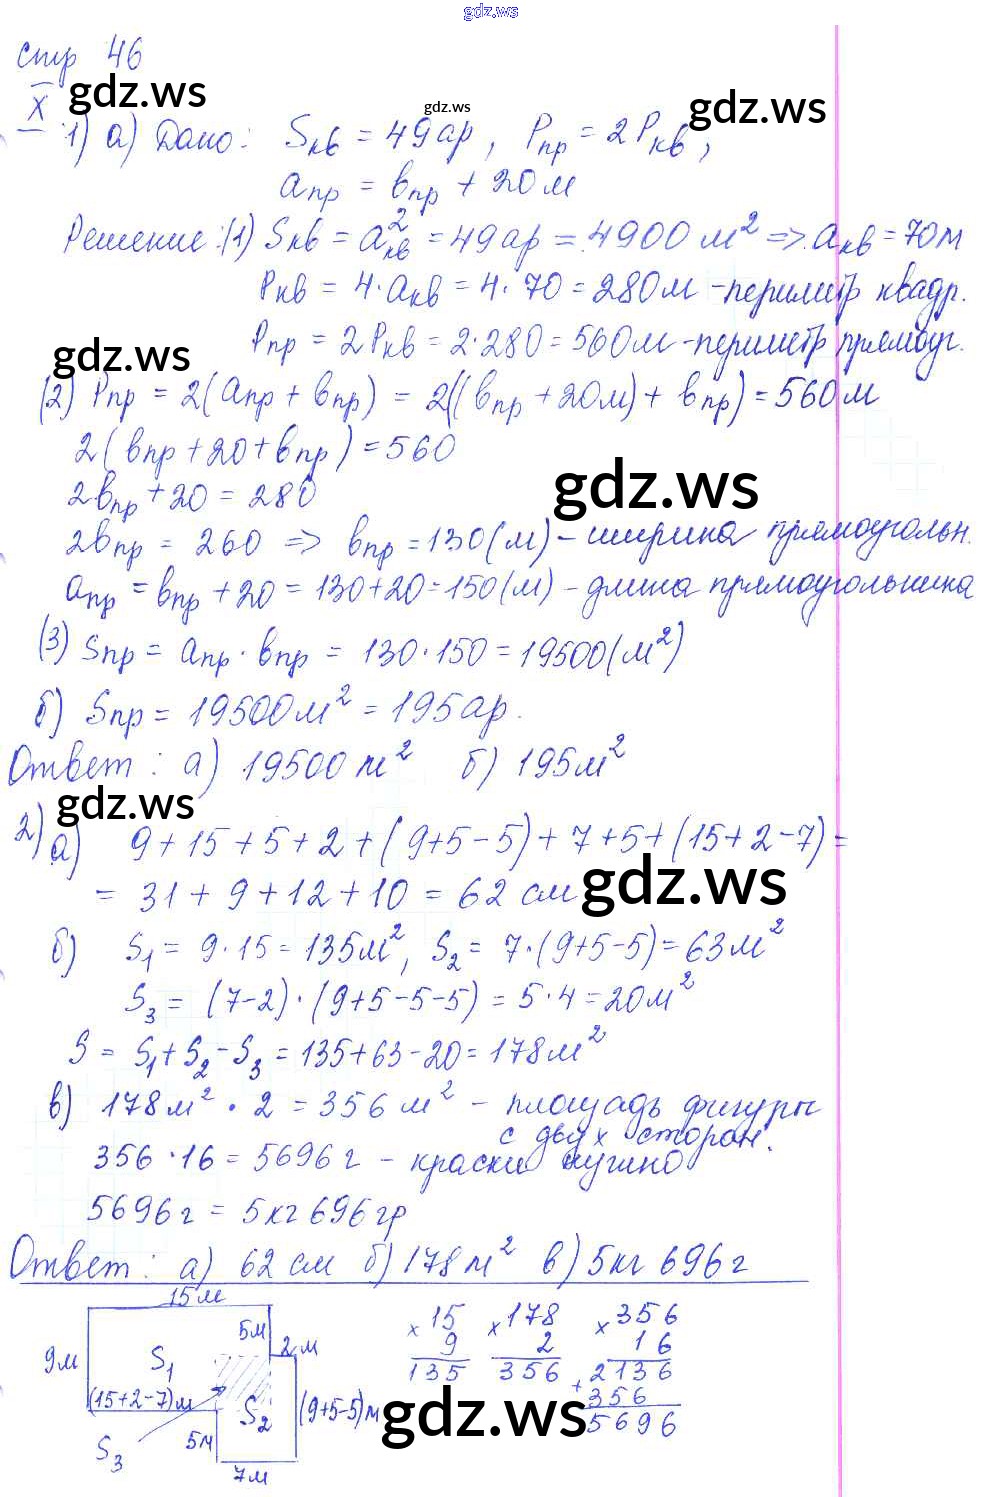 gdz.ws
стр 46
gdz.ws
gdz.ws
gdz.ws
X
1) а) Дано: Sкв = 49ар, Pпр = 2Pкв,
aпр = bпр + 20м
Решение: (1) Sкв = a²кв = 49ар = 4900 м² => aкв = 70м
Pкв = 4·aкв = 4·70 = 280м - периметр квадр.
Pпр = 2Pкв = 2·280 = 560м - периметр прямоуг.
gdz.ws
(2) Pпр = 2(aпр + bпр) = 2((bпр + 20м) + bпр) = 560м
2(bпр + 20 + bпр) = 560
gdz.ws
2bпр + 20 = 280
2bпр = 260 => bпр = 130(м) - ширина прямоугольн.
aпр = bпр + 20 = 130 + 20 = 150(м) - длина прямоугольника
(3) Sпр = aпр · bпр = 130·150 = 19500(м²)
б) Sпр = 19500м² = 195ар.
Ответ: а) 19500 м² б) 195м²
gdz.ws
2) а) 9 + 15 + 5 + 2 + (9+5-5) + 7 + 5 + (15+2-7) =
= 31 + 9 + 12 + 10 = 62 см
gdz.ws
б) S1 = 9·15 = 135м², S2 = 7·(9+5-5) = 63м²
S3 = (7-2)·(9+5-5-5) = 5·4 = 20м²
S = S1 + S2 - S3 = 135+63-20 = 178м²
в) 178м² · 2 = 356 м² - площадь фигуры
с двух сторон.
356 · 16 = 5696 г - краски нужно
5696 г = 5кг 696гр
Ответ: а) 62 см б) 178м² в) 5кг 696 г
15м
5м
2м
9м
S1
(15+2-7)м
S2
(9+5-5)м
5м
S3
7м
× 15
9
135
× 178
2
356
× 356
16
+ 2136
356
5696
gdz.ws